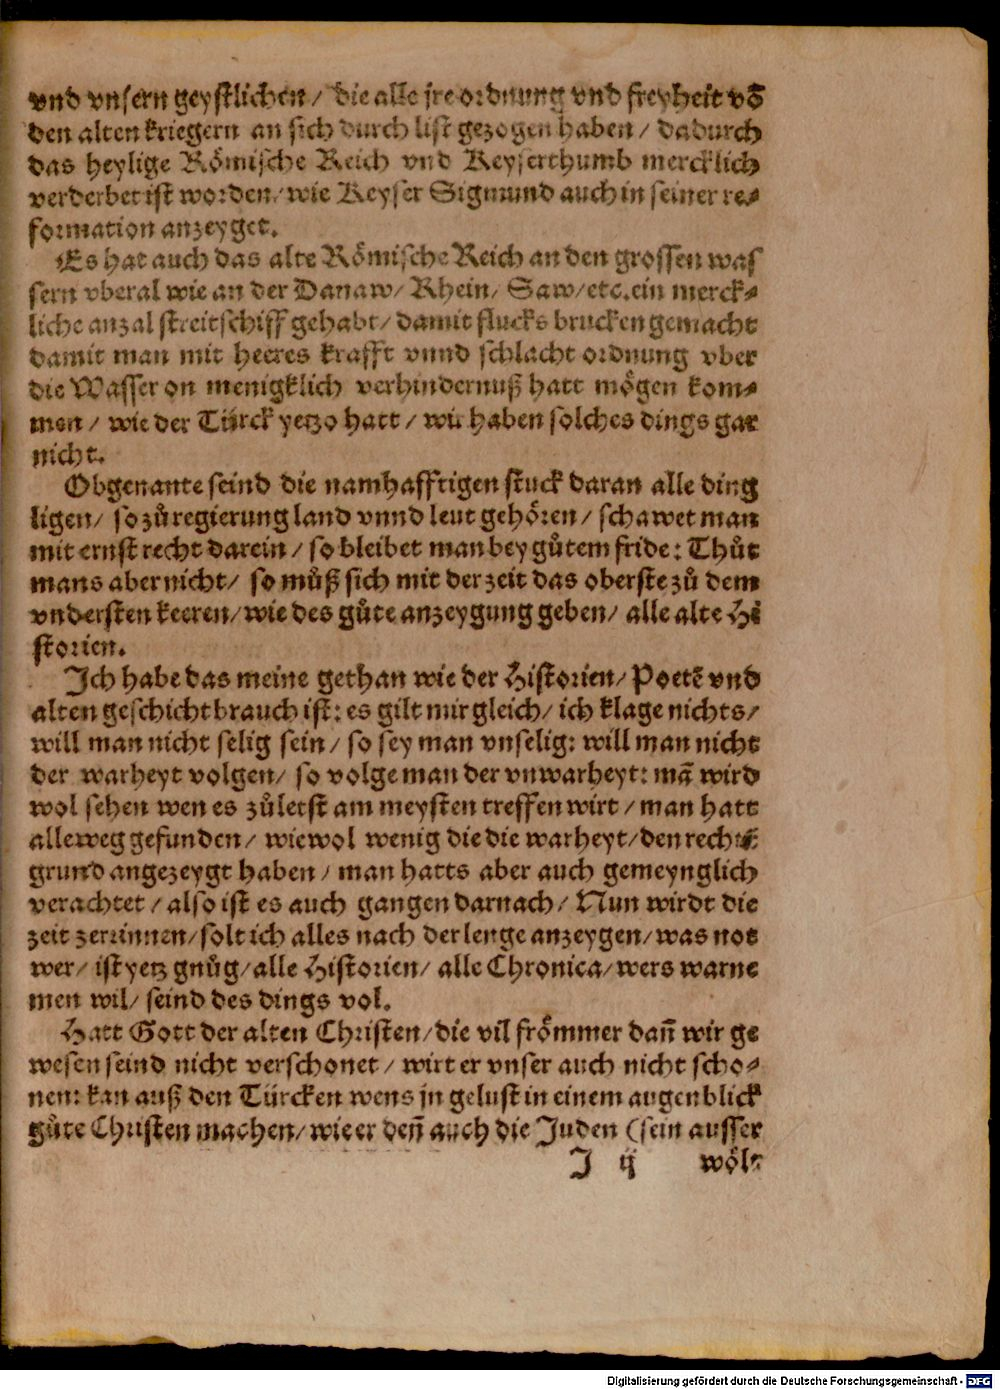 vnd vnsern geystlichen / die alle jre ordnung vnd freyheit võ
den alten kriegern an sich durch list gezogen haben / dadurch
das heylige Römische Reich vnd Keyserthumb mercklich
verderbet ist worden / wie Keyser Sigmund auch in seiner re⸗
formation anzeyget.
Es hat auch das alte Römische Reich an den grossen was
sern vberal wie an der Danaw / Rhein / Saw / etc. ein merck⸗
liche anzal streitschiff gehabt / damit flucks brucken gemacht
damit man mit heeres krafft vnnd schlacht ordnung vber
die Wasser on menigklich verhindernuß hatt mögen kom⸗
men / wie der Türck yetzo hatt / wir haben solches dings gar
nicht.
Obgenante seind die namhafftigen stuck daran alle ding
ligen / so zů regierung land vnnd leut gehören / schawet man
mit ernst recht darein / so bleibet man bey gůtem fride: Thůt
mans aber nicht / so můß sich mit der zeit das oberste zů dem
vndersten keeren / wie des gůte anzeygung geben / alle alte Hi
storien.
Ich habe das meine gethan wie der Historien / Poetẽ vnd
alten geschicht brauch ist: es gilt mir gleich / ich klage nichts /
will man nicht selig sein / so sey man vnselig: will man nicht
der warheyt volgen / so volge man der vnwarheyt: mã wird
wol sehen wen es zůletst am meysten treffen wirt / man hatt
alleweg gefunden / wiewol wenig die die warheyt / den rechtẽ
grund angezeygt haben / man hatts aber auch gemeynglich
verachtet / also ist es auch gangen darnach / Nun wirdt die
zeit zerrinnen / solt ich alles nach der lenge anzeygen / was not
wer / ist yetz gnůg / alle Historien / alle Chronica / wers warne
men wil / seind des dings vol.
Hatt Gott der alten Christen / die vil frömmer dañ wir ge
wesen seind nicht verschonet / wirt er vnser auch nicht scho⸗
nen: kan auß den Türcken wens jn gelust in einem augenblick
gůte Christen machen / wie er deñ auch die Juden (sein ausser
J ij wölt
Digitalisierung gefördert durch die Deutsche Forschungsgemeinschaft - DFG